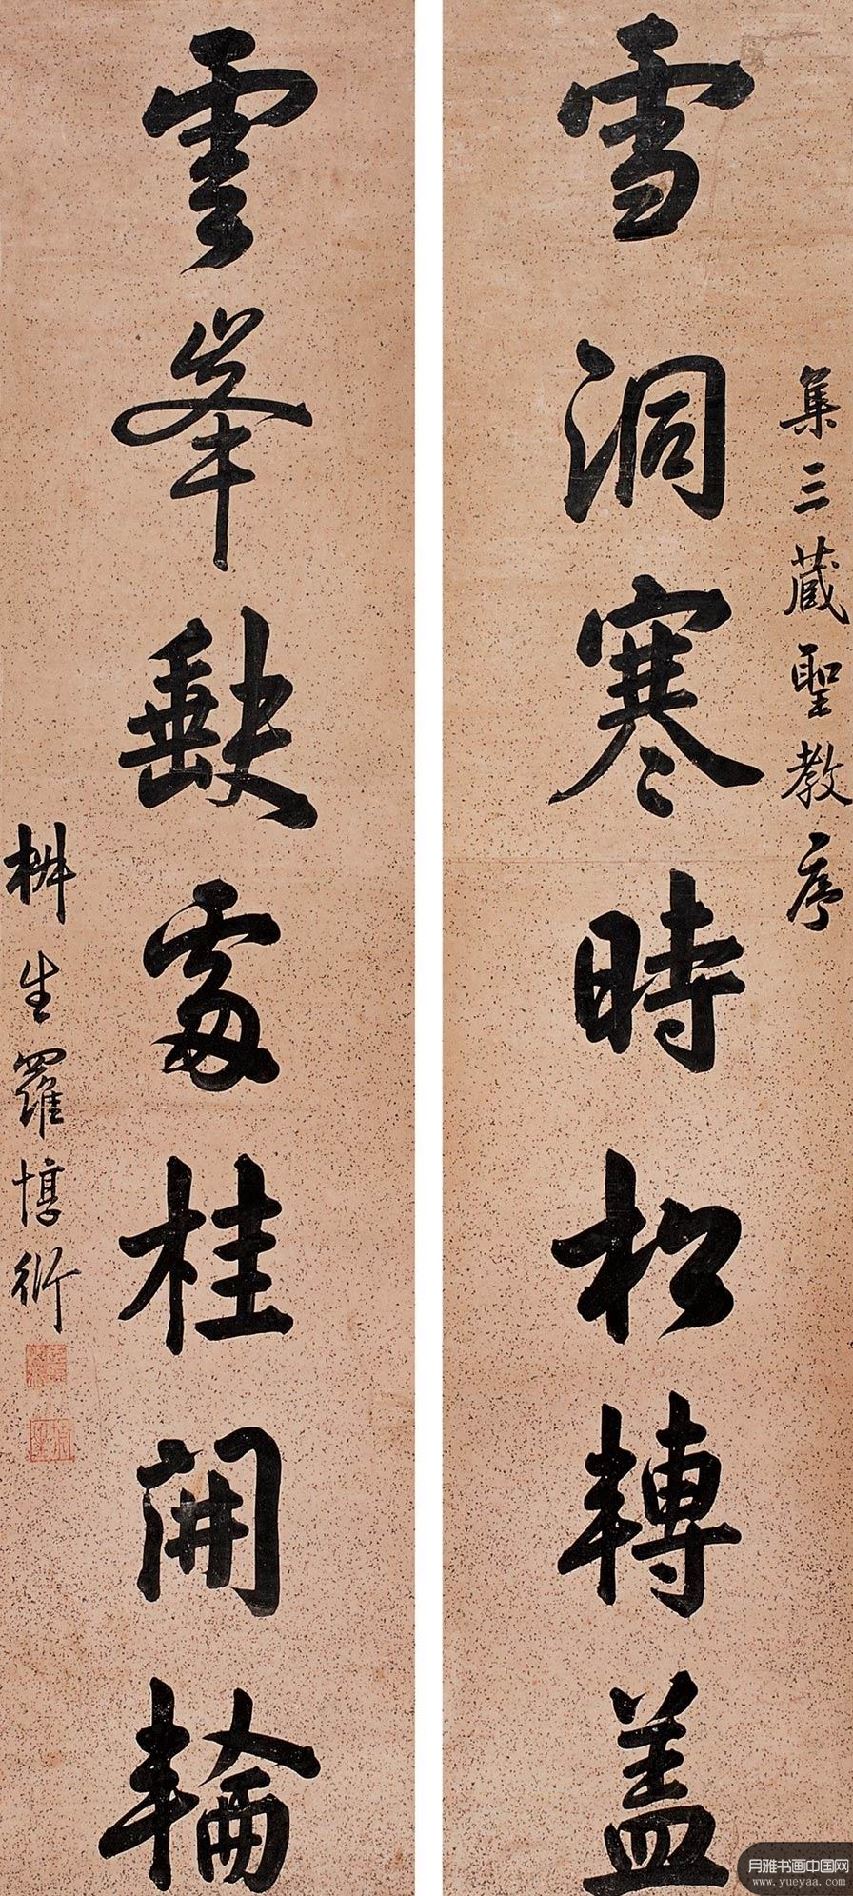 集三藏聖教序
雪洞寒時松轉盖
雲峯缺處桂開輪
椒生羅惇衍
月雅书画中国网
www.yueyaa.com